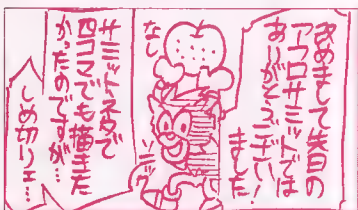 改めまして先日の
アフロサミットでは
ありがとうございい!
ました
なし
ニッ
サミットネタで
四コマでも描きた
かったのですが…
しめ切りェ…